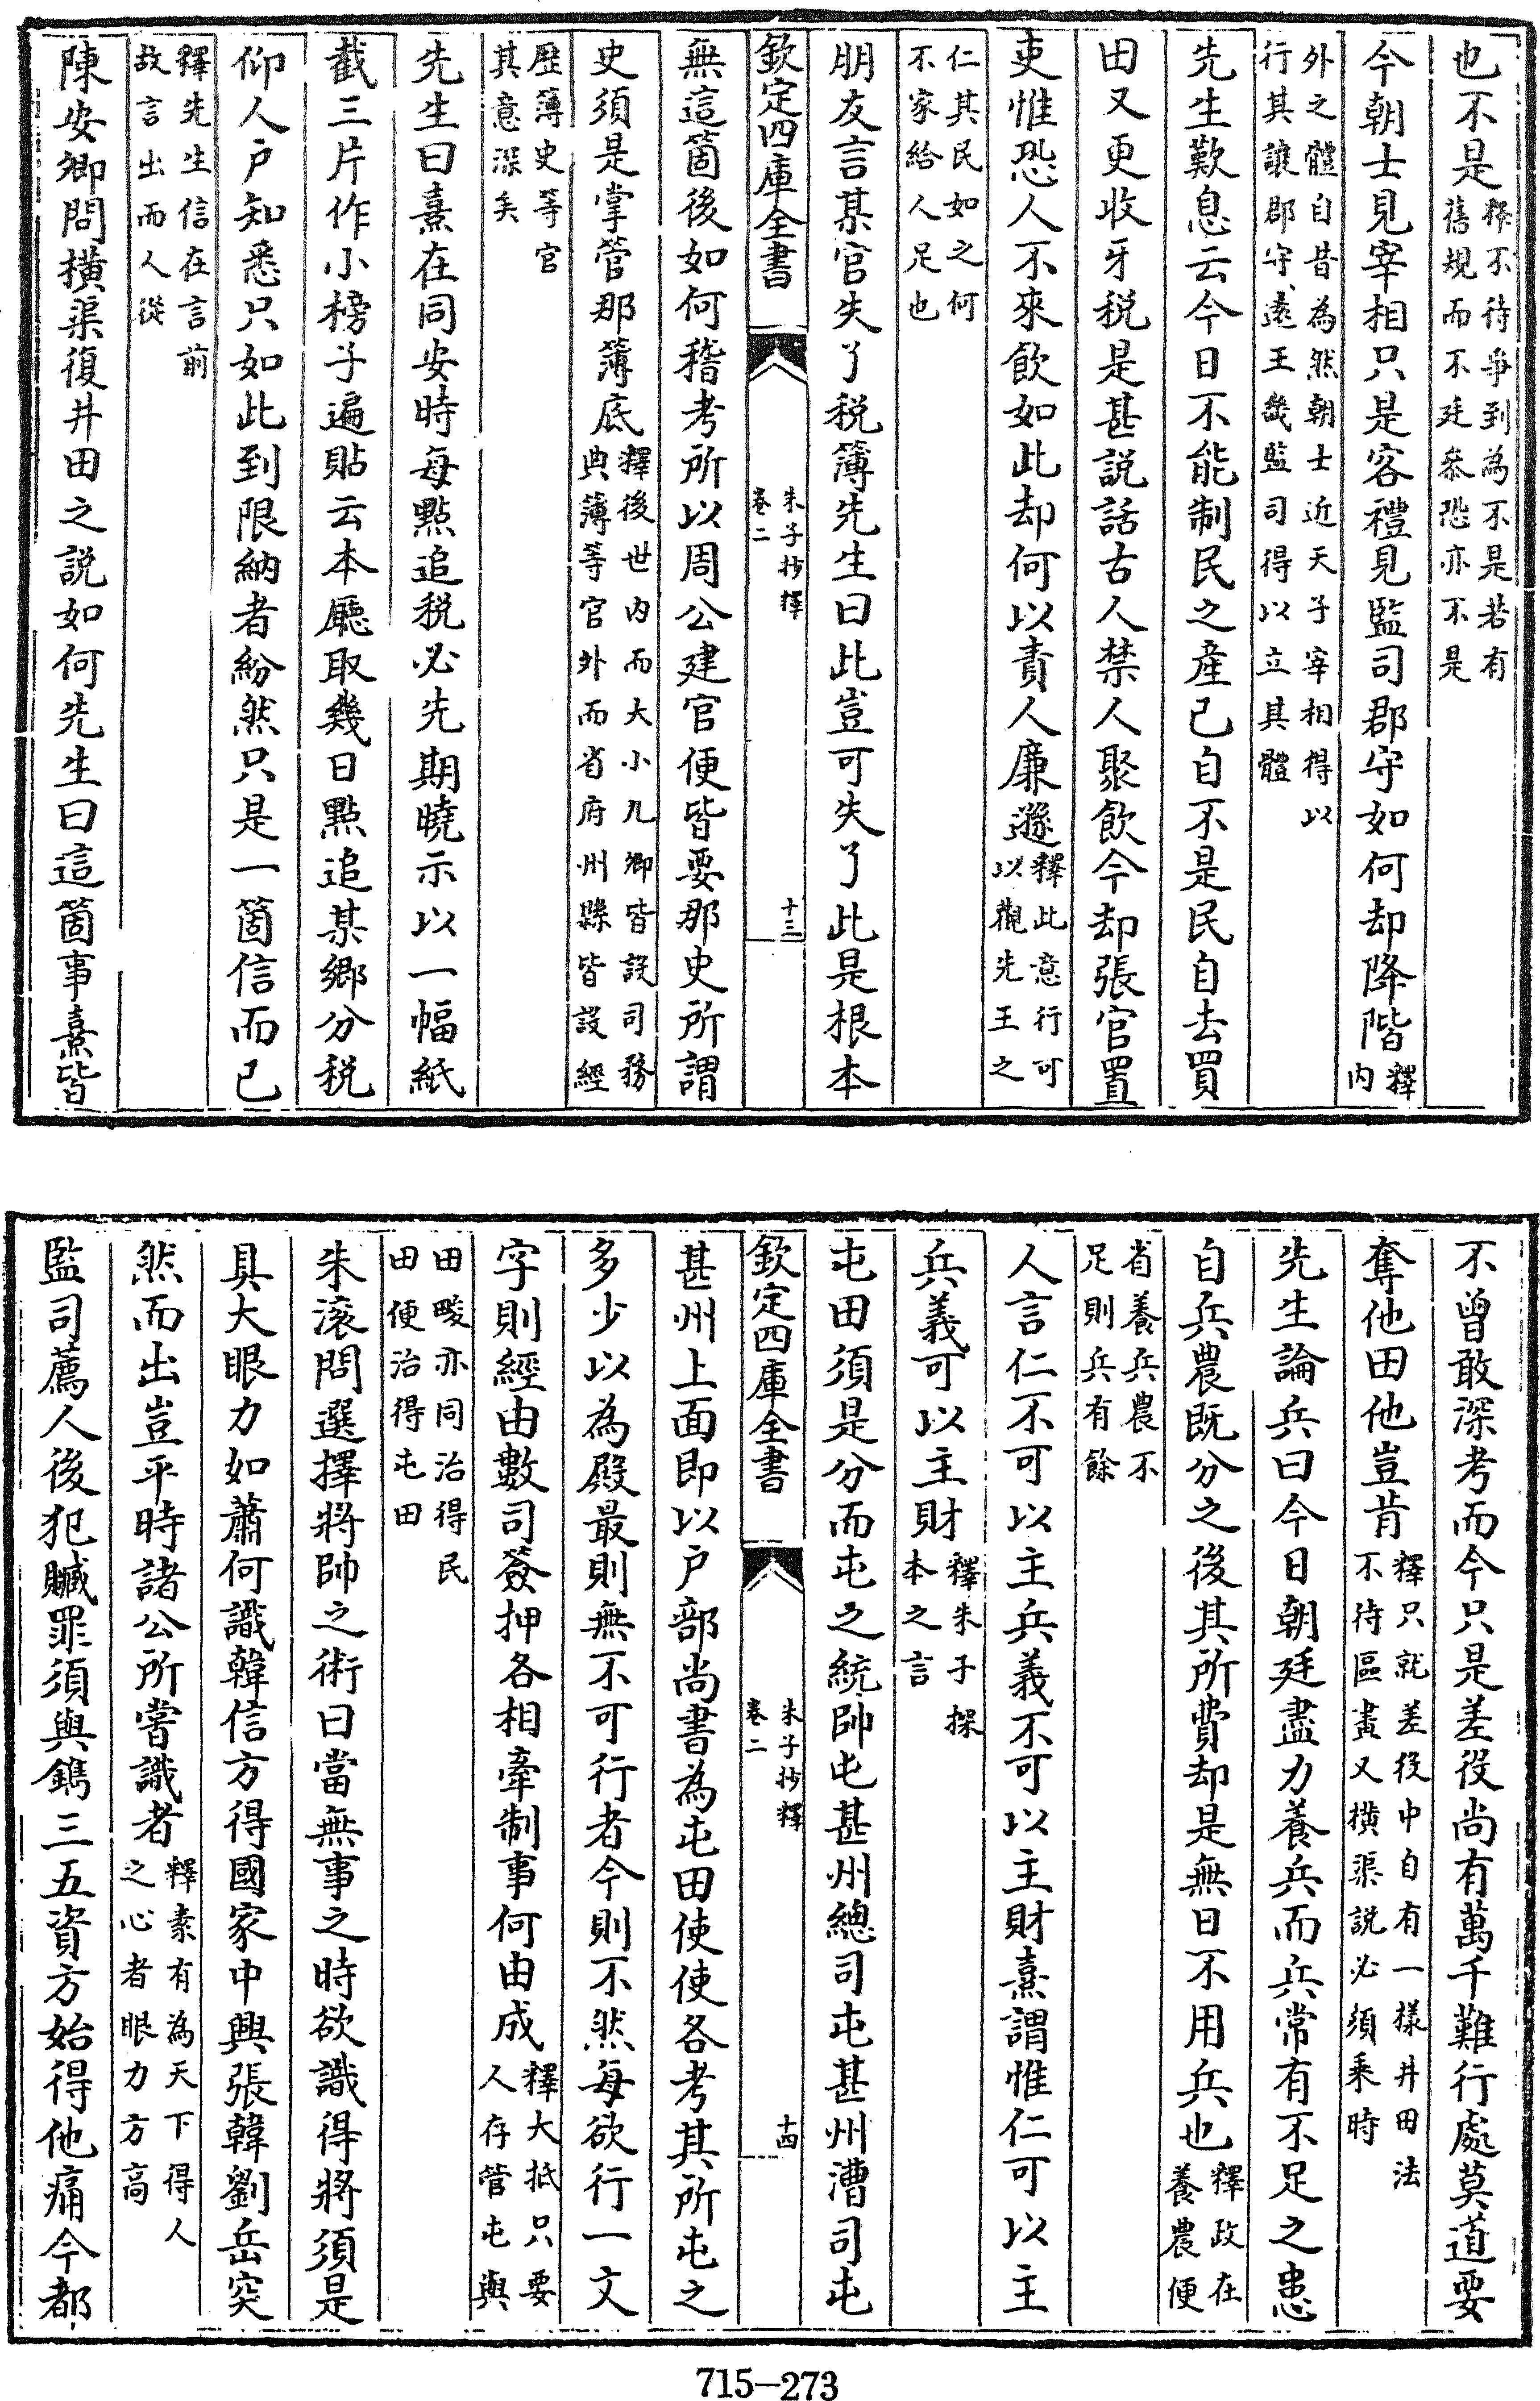 也不是釋不待爭到為不是若有舊規而不廷叅恐亦不是
今朝士見宰相只是客禮見監司郡守如何却降階釋內
外之體自昔為然朝士近天子宰相得以行其讓郡守遠王畿監司得以立其體
先生歎息云今日不能制民之產已自不是民自去買
田又更收牙税是甚説話古人禁人聚飲今却張官置
吏惟恐人不來飲如此却何以責人廉遜釋此意行可以觀先王之
仁其民如之何不家給人足也
朋友言某官失了税簿先生曰此豈可失了此是根本
欽定四庫全書
朱子抄釋
卷二
十三
無這箇後如何稽考所以周公建官便皆要那史所謂
史須是掌管那簿底釋後世內而大小九卿皆設司務典簿等官外而省府州縣皆設經
歴簿史等官其意深矣
先生曰熹在同安時每點追税必先期曉示以一幅紙
截三片作小榜子遍貼云本廳取幾日點追某鄉分税
仰人户知悉只如此到限納者紛然只是一箇信而已
釋先生信在言前故言出而人從
陳安卿問橫渠復井田之説如何先生曰這箇事熹皆
不曾敢深考而今只是差役尚有萬千難行處莫道要
奪他田他豈肯釋只就差役中自有一樣井田法不待區畫又橫渠説必須乘時
先生論兵曰今日朝廷盡力養兵而兵常有不足之患
自兵農既分之後其所費却是無日不用兵也釋政在養農便
省養兵農不足則兵有餘
人言仁不可以主兵義不可以主財熹謂惟仁可以主
兵義可以主財釋朱子探本之言
屯田須是分而屯之統帥屯甚州總司屯甚州漕司屯
欽定四庫全書
朱子抄釋
卷二
十四
甚州上面即以户部尚書為屯田使使各考其所屯之
多少以為殿最則無不可行者今則不然每欲行一文
字則經由數司簽押各相牽制事何由成釋大抵只要人存管屯與
田畯亦同治得民田便治得屯田
朱滚問選擇將帥之術曰當無事之時欲識得將須是
具大眼力如蕭何識韓信方得國家中興張韓劉岳突
然而出豈平時諸公所嘗識者釋素有為天下得人之心者眼力方高
監司薦人後犯贓罪須與鐫三五資方始得他痛今都
715–273